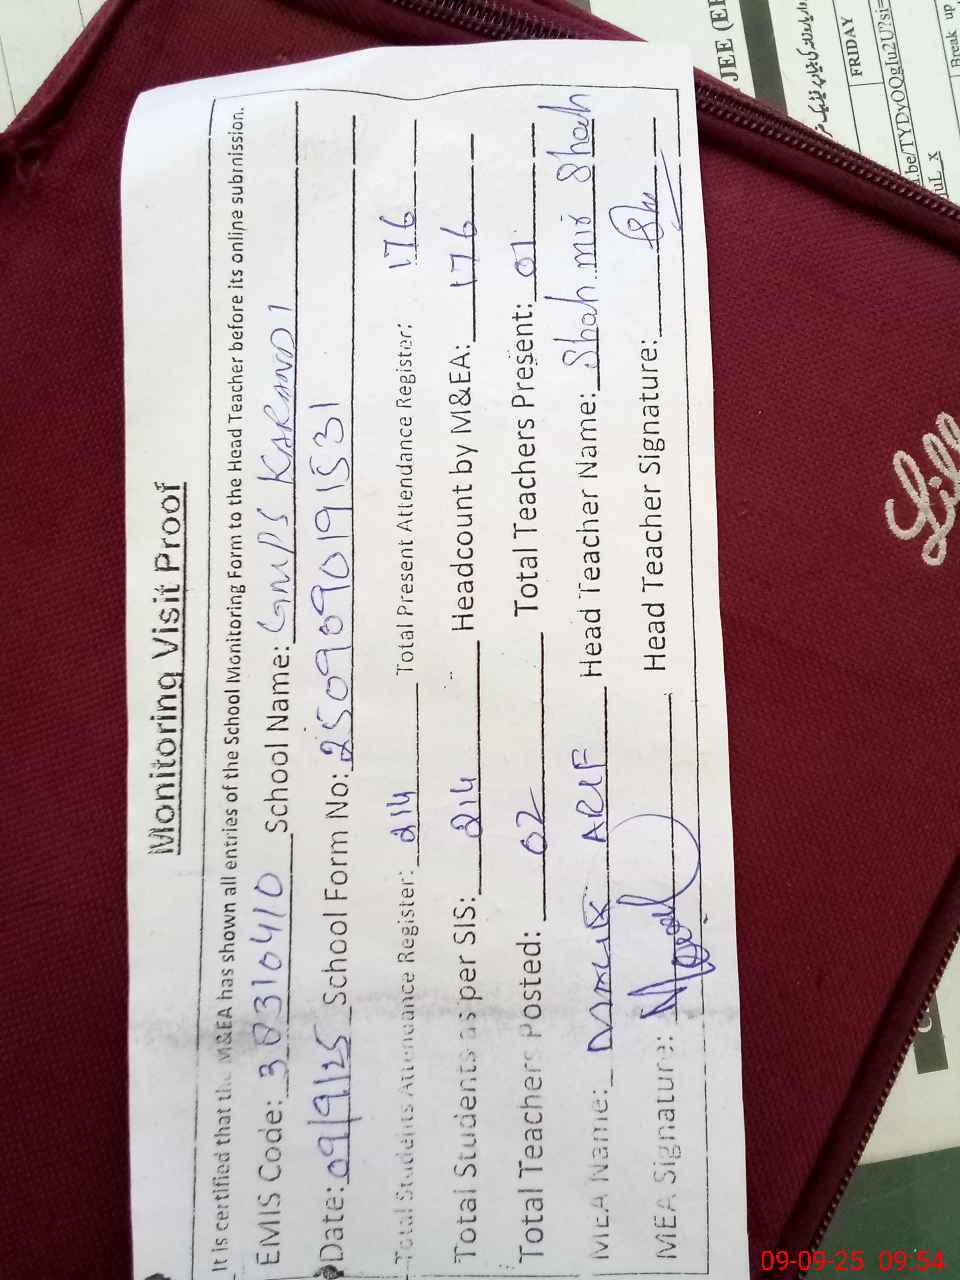 Monitoring Visit Proof
It is certified that the M&EA has shown all entries of the School Monitoring Form to the Head Teacher before its online submission.
EMIS Code: 38310410 School Name: GMPS KARANDI
Date: 09/9/25 School Form No: 2509090191531
Total Students Attendance Register: 214 Total Present Attendance Register: 176
Total Students as per SIS: 214 Headcount by M&EA: 176
Total Teachers Posted: 02 Total Teachers Present: 01
MEA Name: MALIK ARIF Head Teacher Name: Shah mir Shah
MEA Signature: Head Teacher Signature:
JEE (EE
FRIDAY
.be/TYDvOQglu2U?si=
Break up
09-09-25 09:54